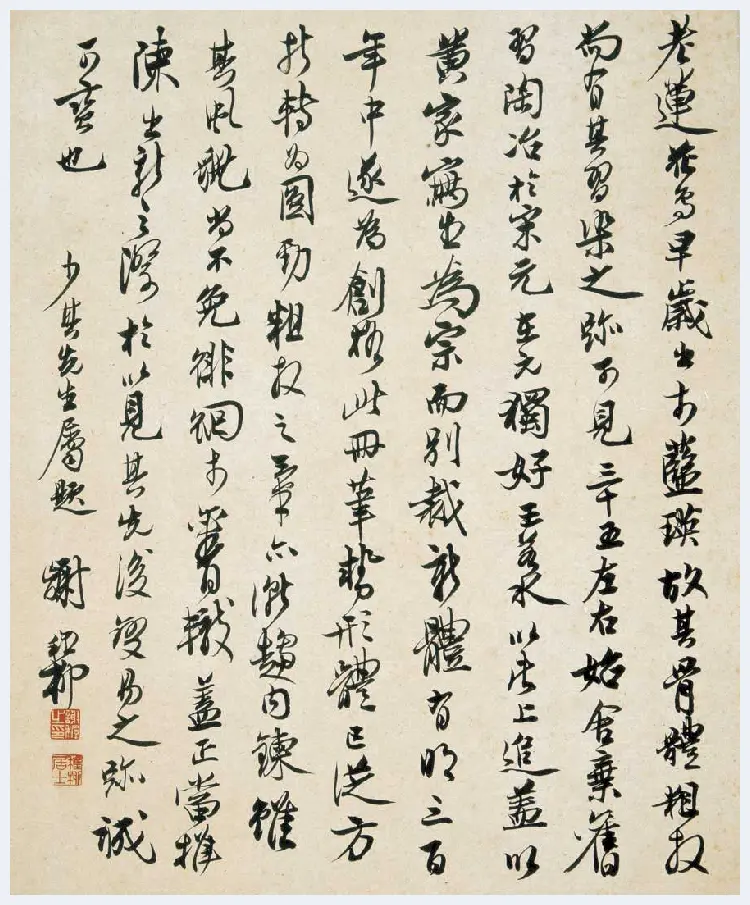 老蓮花鳥早歲出于藍瑛故其骨體粗放
尚有其習染之跡可見三十五左右始舍棄舊
習陶冶於宋元在元獨好王若水以此上追蓋以
黃家寫生為宗而別裁新體有明三百
年中遂為創格此冊筆勢形體已從方
折轉為圓勁粗放之筆亦漸趨內鍊雖
其風貌尚不免徘徊于舊轍蓋正當推
陳出新之際於以見其先後變易之跡誠
可寶也
少其先生屬題 謝稚柳